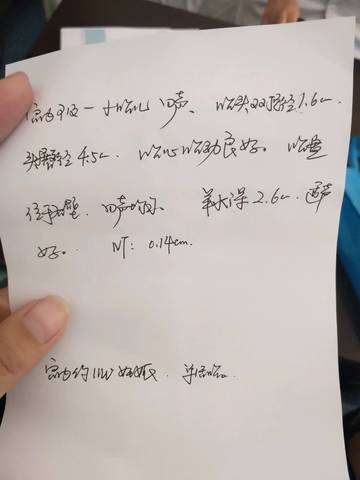 宫内可及一个胎儿回声、胎头双顶径1.6cm
头臀径4.5cm、胎心胎动良好。胎盘
位于壁、回声均匀、羊水深2.6cm、透声
好。 NT: 0.14cm.
宫内约11W妊娠、单活胎。